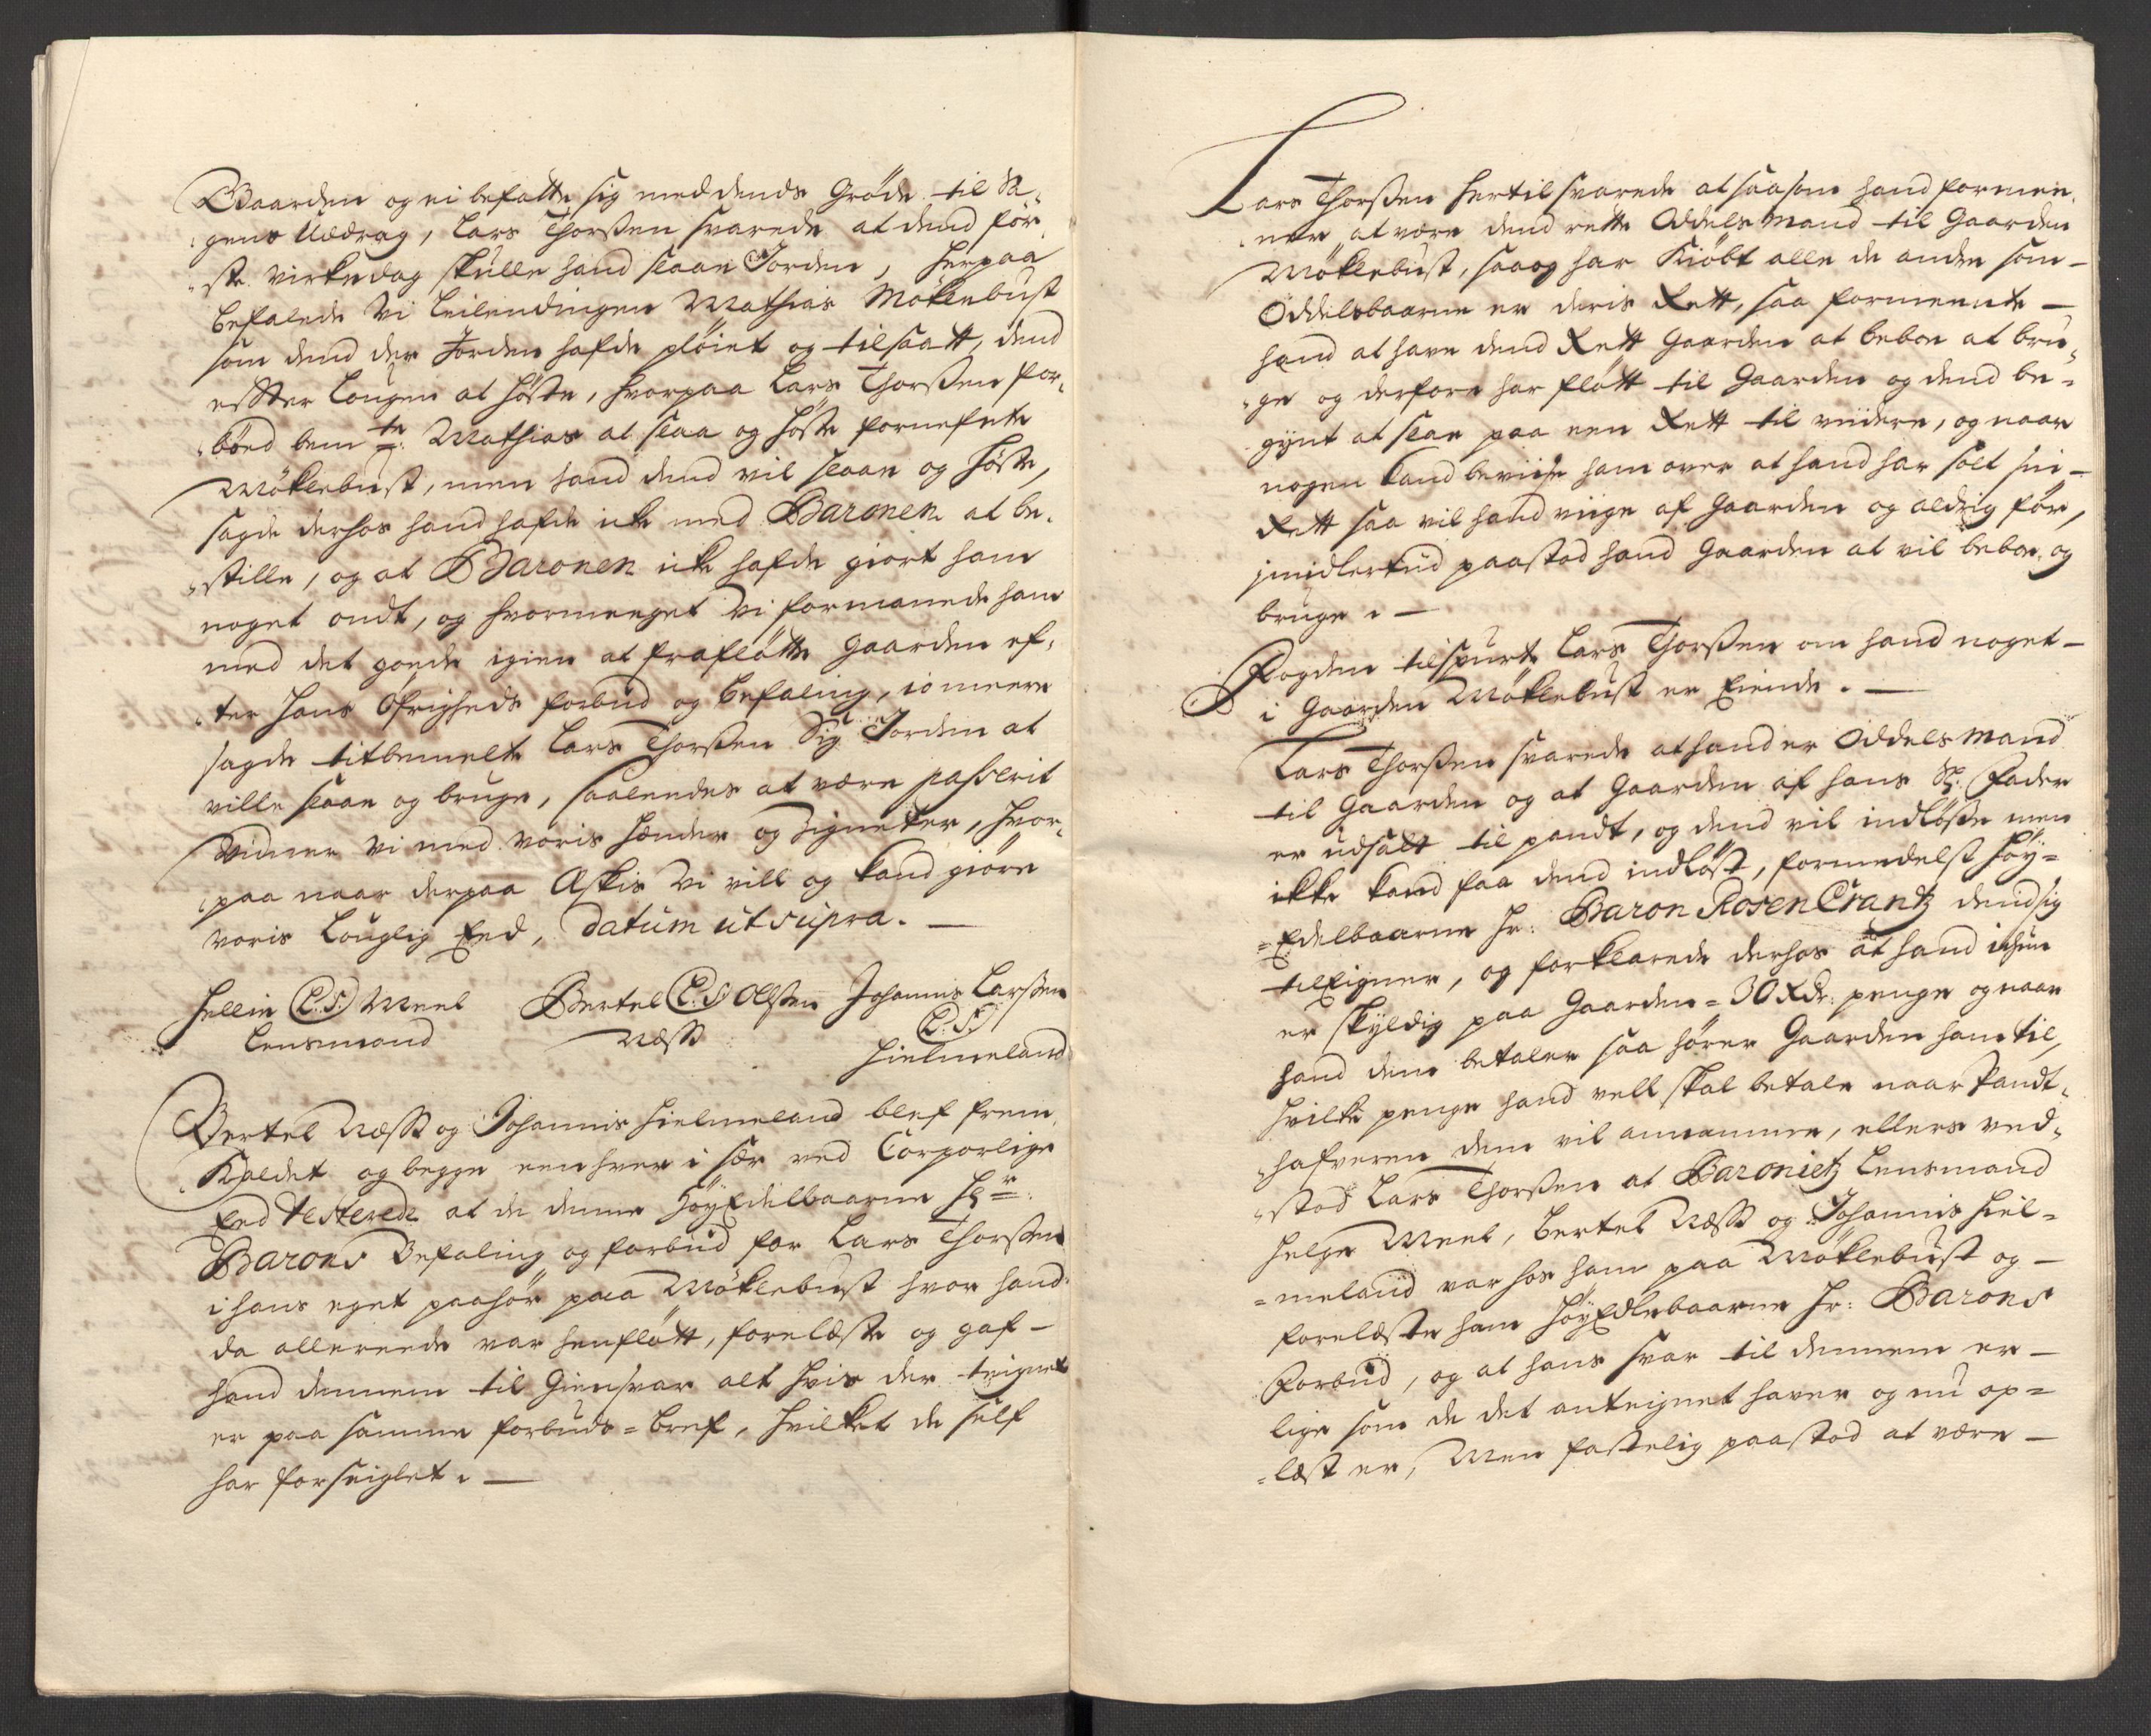 Gaarden og ei befatte sig med dends Grøde til Sa¬
gens Uddrag, Lars Thorßen svarede at dend før¬
ste virkedag skulle hand slaae Jorden, herpaa
befalede Vi Leilendingen Mathias Møklebust
som dend der Jorden hafde pløiet og tilsaatt, dend
effter Lougen at høste, hvorpaa Lars Thorßen for¬
bød bem.te Mathias at slaa og høste fornefnte
Møklebust, men hand dend vil slaae og høste,
sagde derhos hand hafde icke med Baronen at be¬
stille, og at Baronen icke hafde giort ham
noget ondt, og hvormeeget Vi formanede ham
med det goede igien at frafløtte Gaarden ef¬
ter hans Øfrigheds forbud og befaling, io meere
sagde titbemelte Lars Thorßen Sig Jorden at
ville slaae og bruge, saaleedes at være passerit
Vidner Vi med voris hænder og Zigneter, hvor¬
paa naar derpaa Æskis Vi vill og kand giøre
voris Louglig Eed, Datum ut supra. —
Hellie (L.S.) Meel Bertel (L.S.) Olßen Johannis Larßen
Lensmand Næss (L.S.)
Hielmeland
Bertel Næss og Johannis Hielmeland blef frem¬
kaldet og begge een hver i sær ved Corporlige
Eed Testerede at de denne HøyEdelbaarne Hr.
Barons Befaling og forbud for Lars Thorßen
i hans eget paahør paa Møklebust hvor hand
da allereede var henfløtt, forelæste og gaf —
hand dennem til Giensvar alt hvis der teignet
er paa samme forbuds-bref, hvilket de self
har forseiglet. —
Lars Thorßen hertil svarede at saasom hand formee¬
ner at være dend rette Oddels Mand til Gaarden
Møklebust, saa og har kiøbt alle de andre som —
Oddelsbaarne er deris Rett, saa formeente —
hand at have dend Rett Gaarden at beboe at bru¬
ge og derfore har fløtt til Gaarden og dend be¬
gynt at slaae paa een Rett til viidere, og naar
nogen kand beviise ham over at hand har solt sin —
Rett saa vil hand viige af Gaarden og aldrig før,
jmidlertiid paastod hand Gaarden at vil beboe og
bruge. —
Fogden tilspurte Lars Thorßen om hand noget —
i Gaarden Møklebust er Eiende. —
Lars Thorßen svarede at hand er Oddels Mand
til Gaarden og at Gaarden af hans Sl. Fader
er udsatt til pandt, og dend vil indløsse men
ikke kand faa dend indløst, formedelst Høy=
=Edelbaarne Hr: Baron RosenCrantz dend sig
tilEigner, og forklarede derhos at hand ichun
er skyldig paa Gaarden = 30 Rdr: penge og naar
hand dem betaler saa hører Gaarden ham til,
hvilke penge hand vell skal betale naar Pandt¬
hafveren dem vil annamme, ellers ved¬
stod Lars Thorßen at Baronietz Lensmand
Helge Meel, Bertel Næss og Johannis Hiel=
=meland var hos ham paa Møklebust og —
forelæste ham HøyEdlebaarne Hr: Barons
Forbud, og at hans svar til dennem er —
lige som de det anteignet haver og nu op=
=læst er, Men fastelig paastod at være —